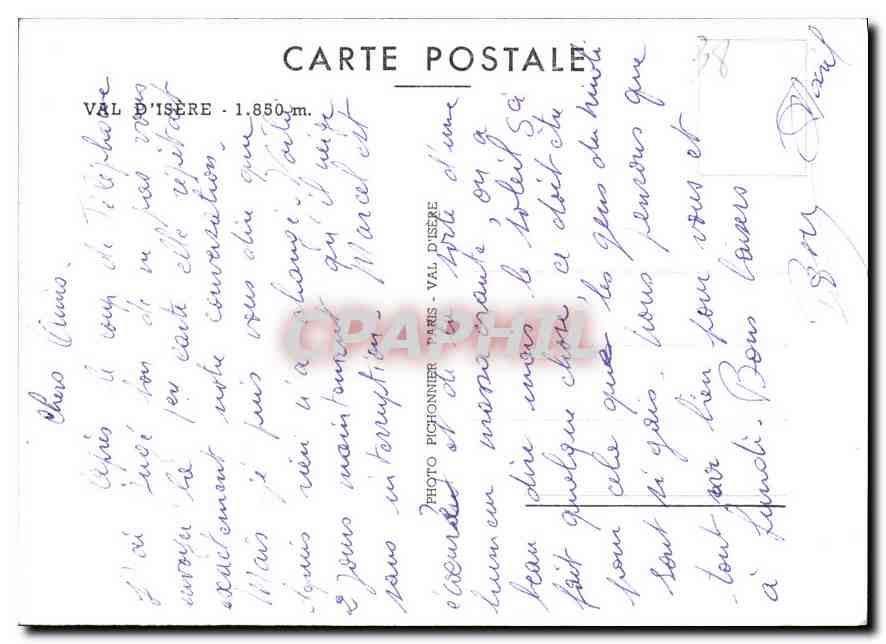 CARTE POSTALE
VAL D'ISÈRE - 1.850 m.
PHOTO PICHONNIER PARIS - VAL D'ISÈRE
CPAPHIL
Chers Amis.
Après le coup de Téléphone
J'ai jugé bon de ne pas vous
envoyer la carte elle répétait
exactement notre conversation.
Mais je puis vous dire que
depuis rien n'a changé. Voilà
2 jours maintenant qu'il neige
sans interruption. Marcel est
écoeuré et de une sorte d'une
humeur massacrante, on a
beau dire mais le soleil ça
fait quelque chose, ce doit être
pour cela que les gens du midi
sont si gais. Nous pensons que
tout va bien pour vous et
à Lundi. Bons baisers